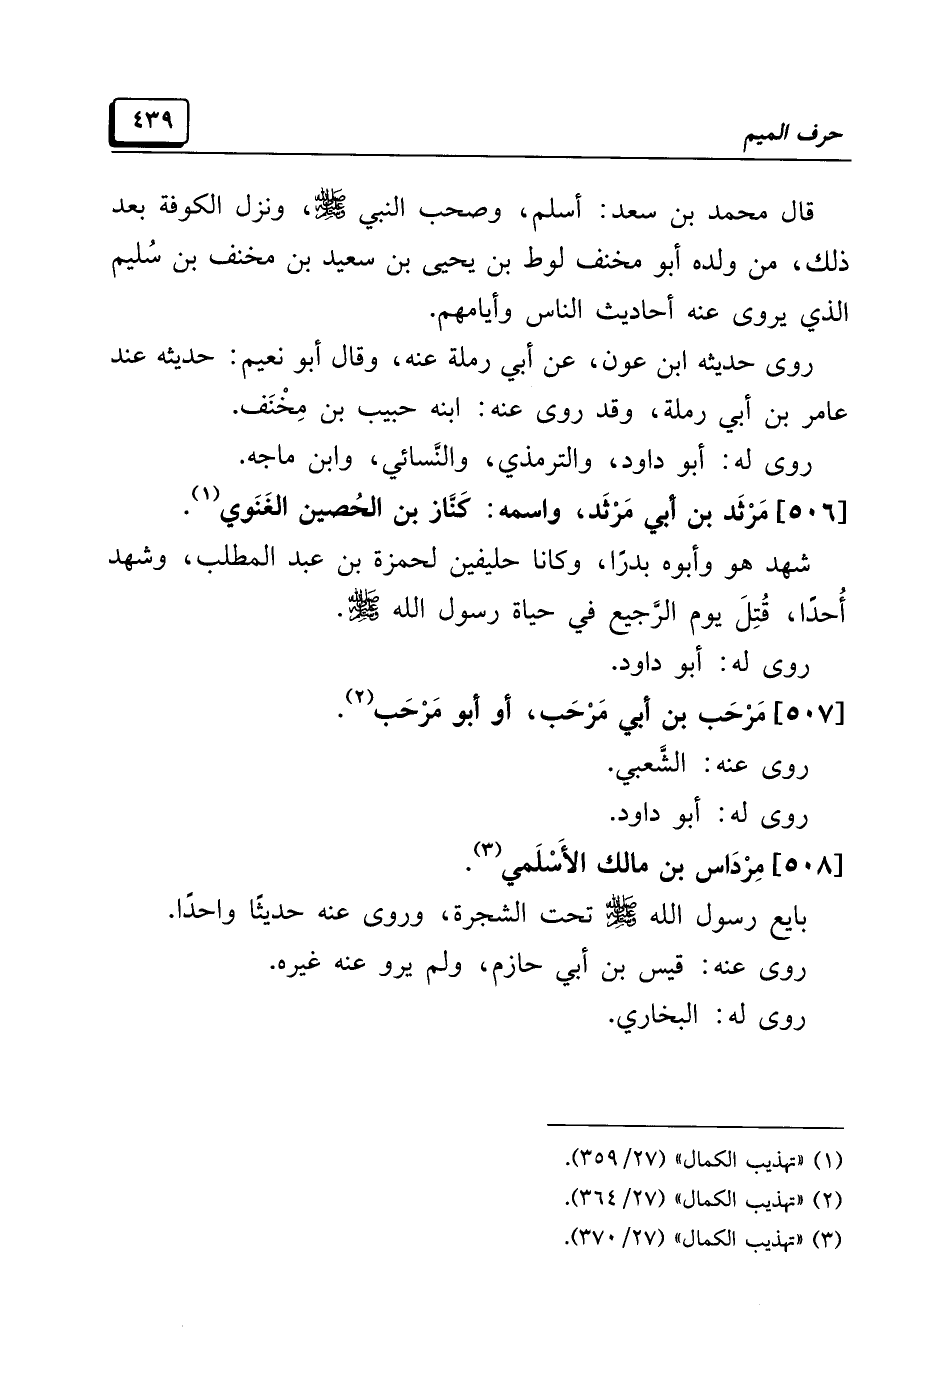 حرف الميم
٤٣٩
قال محمد بن سعد: أسلم، وصحب النبي ﷺ، ونزل الكوفة بعد
ذلك، من ولده أبو مخنف لوط بن يحيى بن سعيد بن مخنف بن سُليم
الذي يروى عنه أحاديث الناس وأيامهم.
روى حديثه ابن عون، عن أبي رملة عنه، وقال أبو نعيم: حديثه عند
عامر بن أبي رملة، وقد روى عنه: ابنه حبيب بن مِخْنَف.
روى له: أبو داود، والترمذي، والنَّسائي، وابن ماجه.
[٥٠٦] مَرْثَد بن أبي مَرْثَد، واسمه: كَنَّاز بن الحُصين الغَنَوي(١).
شهد هو وأبوه بدرًا، وكانا حليفين لحمزة بن عبد المطلب، وشهد
أُحدًا، قُتِلَ يوم الرَّجيع في حياة رسول الله ﷺ.
روى له: أبو داود.
[٥٠٧] مَرْحَب بن أبي مَرْحَب، أو أبو مَرْحَب(٢).
روى عنه: الشَّعبي.
روى له: أبو داود.
[٥٠٨] مِرْدَاس بن مالك الأَسْلَمي(٣).
بايع رسول الله ﷺ تحت الشجرة، وروى عنه حديثًا واحدًا.
روى عنه: قيس بن أبي حازم، ولم يرو عنه غيره.
روى له: البخاري.
(١) «تهذيب الكمال» (٢٧/ ٣٥٩).
(٢) «تهذيب الكمال» (٢٧/ ٣٦٤).
(٣) «تهذيب الكمال» (٢٧/ ٣٧٠).